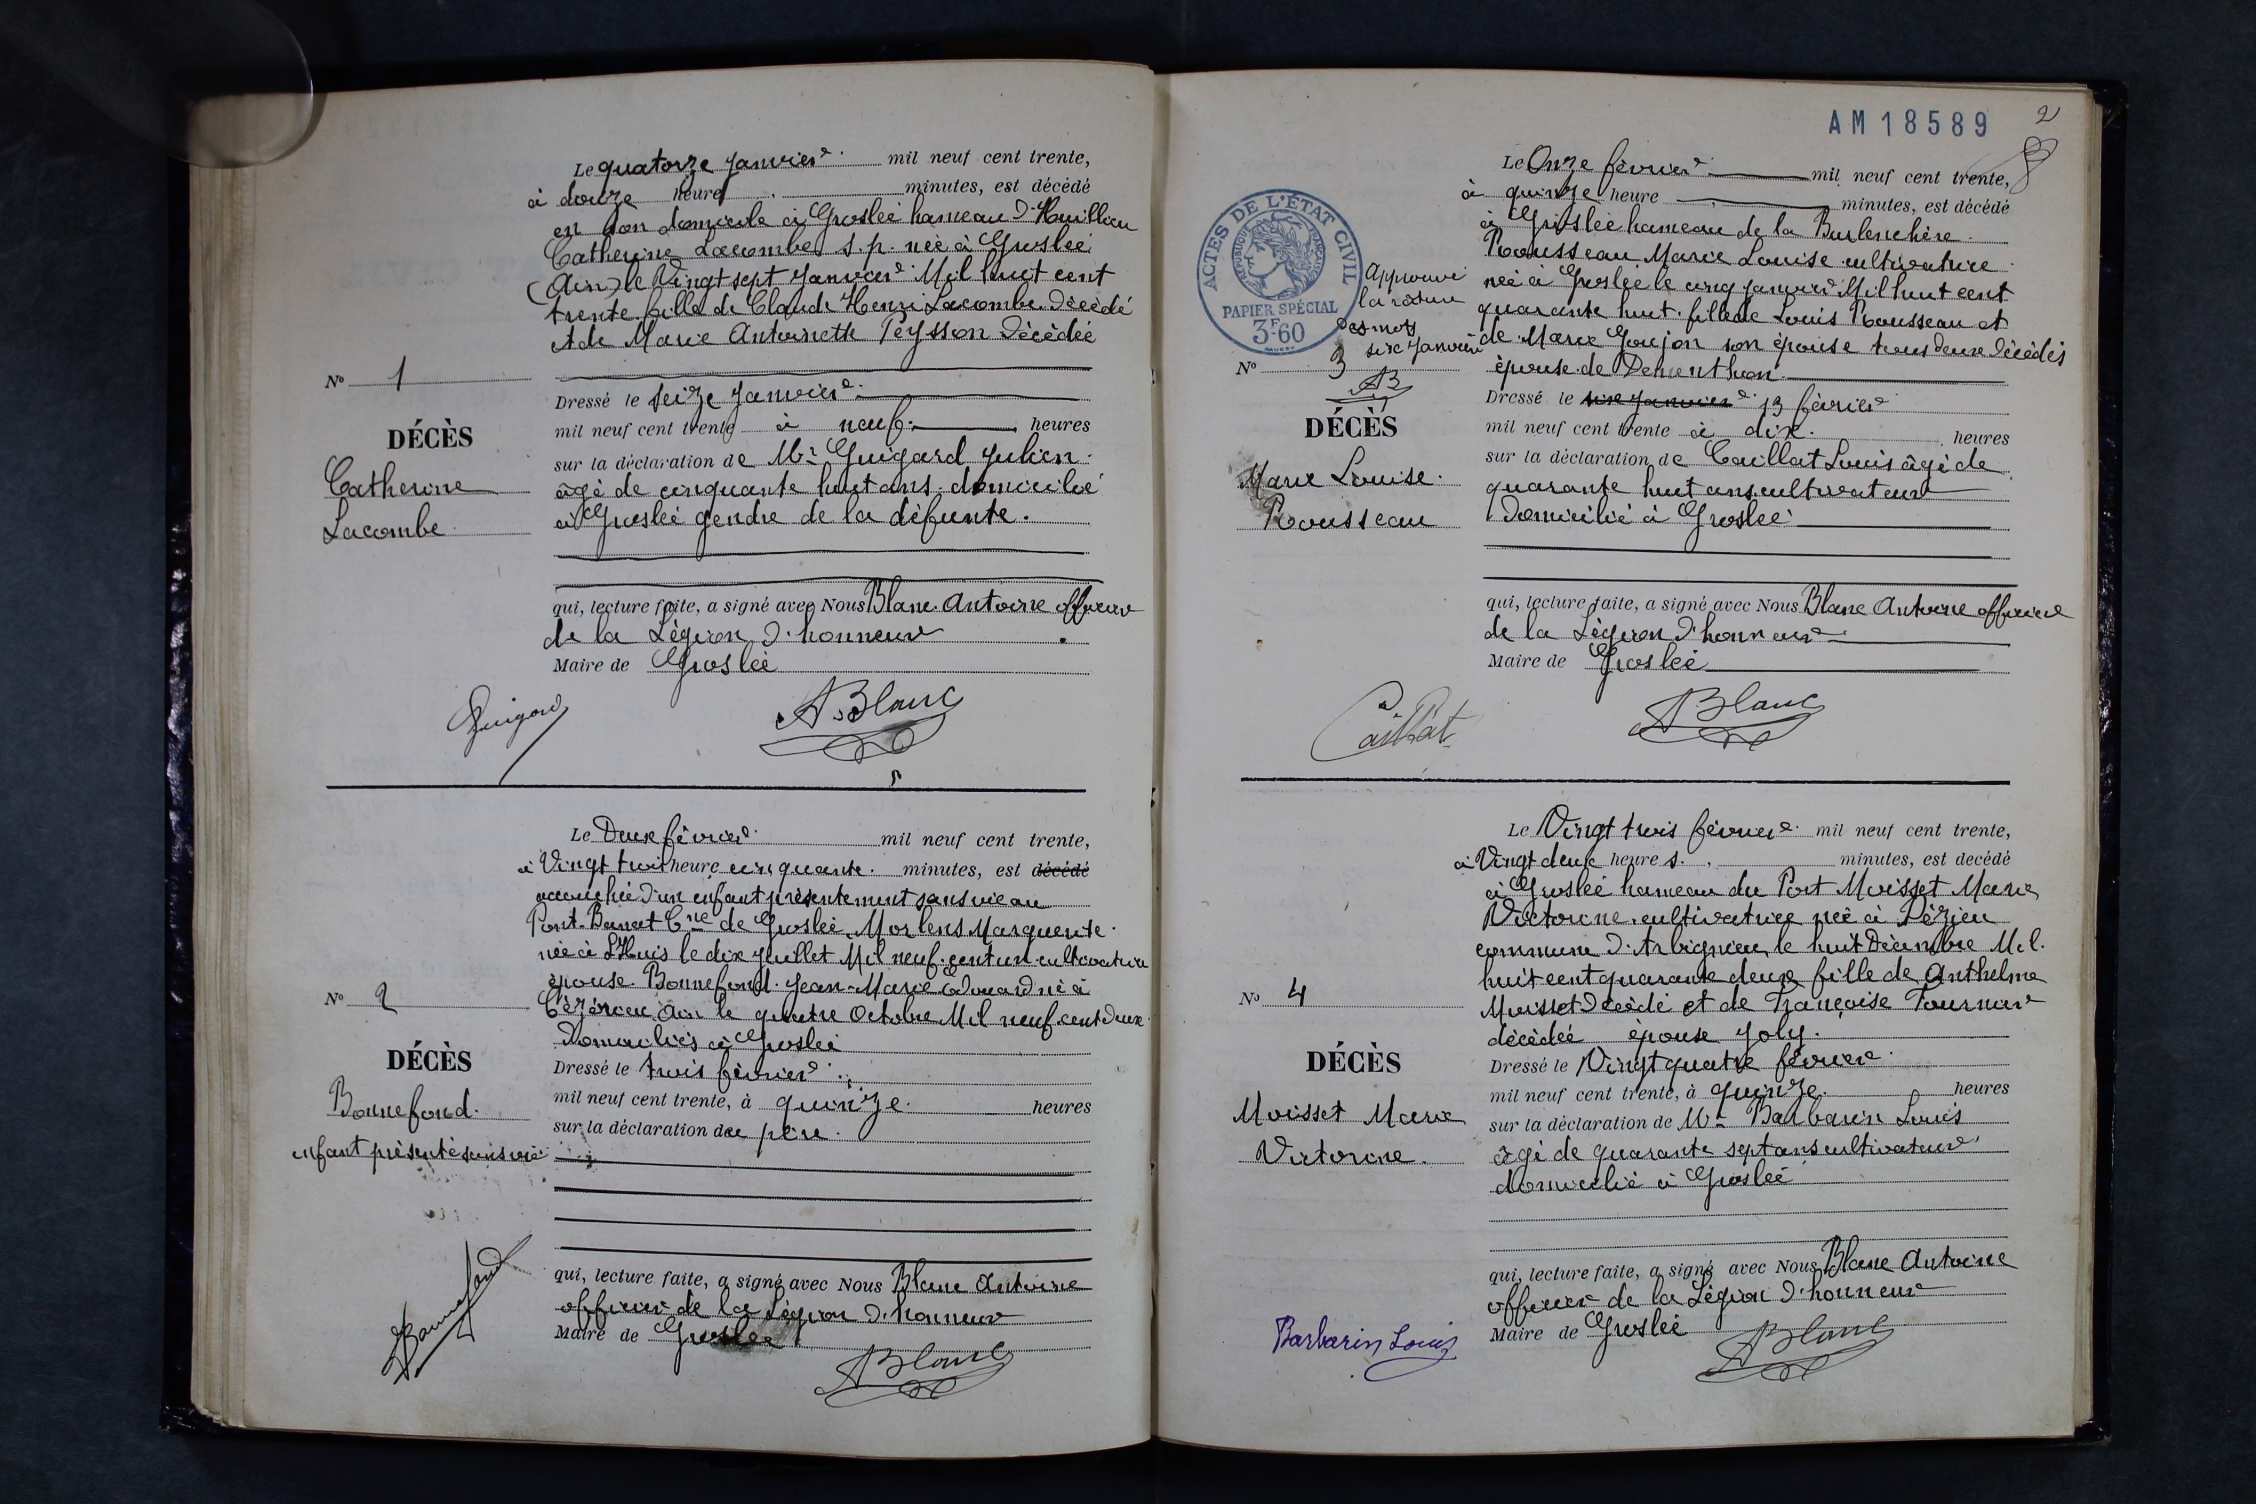 Le quatorze janvier mil neuf cent trente,
à douze heures minutes, est décédé
en son domicile à Groslée hameau d'Huillieu
Catherine Lacombe s.p. née à Groslée
(Ain) le Vingt sept janvier Mil huit cent
trente fille de Claude Henri Lacombe décédé
et de Marie Antoinette Peysson décédée
N° 1
Dressé le seize janvier
mil neuf cent trente à neuf heures
DÉCÈS
sur la déclaration de Mr Guigard Julien
Catherine
âgé de cinquante huit ans domicilié
Lacombe
à Groslée gendre de la défunte.
qui, lecture faite, a signé avec Nous Blanc Antoine officier
de la Légion d'honneur
Maire de Groslée
Guigard
ABlanc
Le Deux février mil neuf cent trente,
à Vingt trois heure cinquante minutes, est décédé
accouchée d'un enfant présentement sans vie au
Port Cne de Groslée Morlens Marguerite
née à L'Huis le dix juillet Mil neuf cent un cultivatrice
épouse Bonnefond Jean-Marie Edouard né à
Cézérieu Ain le quatre Octobre Mil neuf cent deux
domiciliés à Groslée
N° 2
DÉCÈS
Dressé le trois février
Bonnefond.
mil neuf cent trente, à quinze heures
enfant présenté sans vie
sur la déclaration du père
qui, lecture faite, a signé avec Nous Blanc Antoine
officier de la Légion d'honneur
Maire de Groslée
Bonnefond
ABlanc
AM18589
2
Le Onze février mil neuf cent trente,
à quinze heure minutes, est décédé
à Groslée hameau de la Burlenchère
Rousseau Marie Louise cultivatrice
née à Groslée le cinq janvier Mil huit cent
quarante huit fille de Louis Rousseau et
de Marie Goujon son épouse tous deux décédés
épouse de Dementhon
ACTES DE L'ÉTAT CIVIL
RÉPUBLIQUE FRANÇAISE
PAPIER SPÉCIAL
3F60
Approuvé
la rature
des mots
six janvier
AB
N° 3
Dressé le six janvier 13 février
DÉCÈS
mil neuf cent trente à dix heures
Marie Louise
sur la déclaration de Caillat Louis âgé de
quarante huit ans cultivateur
Rousseau
domicilié à Groslée
qui, lecture faite, a signé avec Nous Blanc Antoine officier
de la Légion d'honneur
Maire de Groslée
Caillat
ABlanc
Le Vingt trois février mil neuf cent trente,
à Vingt deux heures. minutes, est decédé
à Groslée hameau du Port Moisset Marie
Victorine cultivatrice née à Pézieu
commune d'Arbignieu le huit Décembre Mil
huit cent quarante deux fille de Anthelme
Moisset décédé et de Françoise Tournier
décédée épouse Joly.
N° 4
DÉCÈS
Dressé le Vingt quatre février
mil neuf cent trente, à quinze heures
Moisset Marie
sur la déclaration de Mr Barbarin Louis
Victorine.
âgé de quarante sept ans cultivateur
domicilié à Groslée
qui, lecture faite, a signé avec Nous Blanc Antoine
officier de la Légion d'honneur
Maire de Groslée
Barbarin Louis
ABlanc